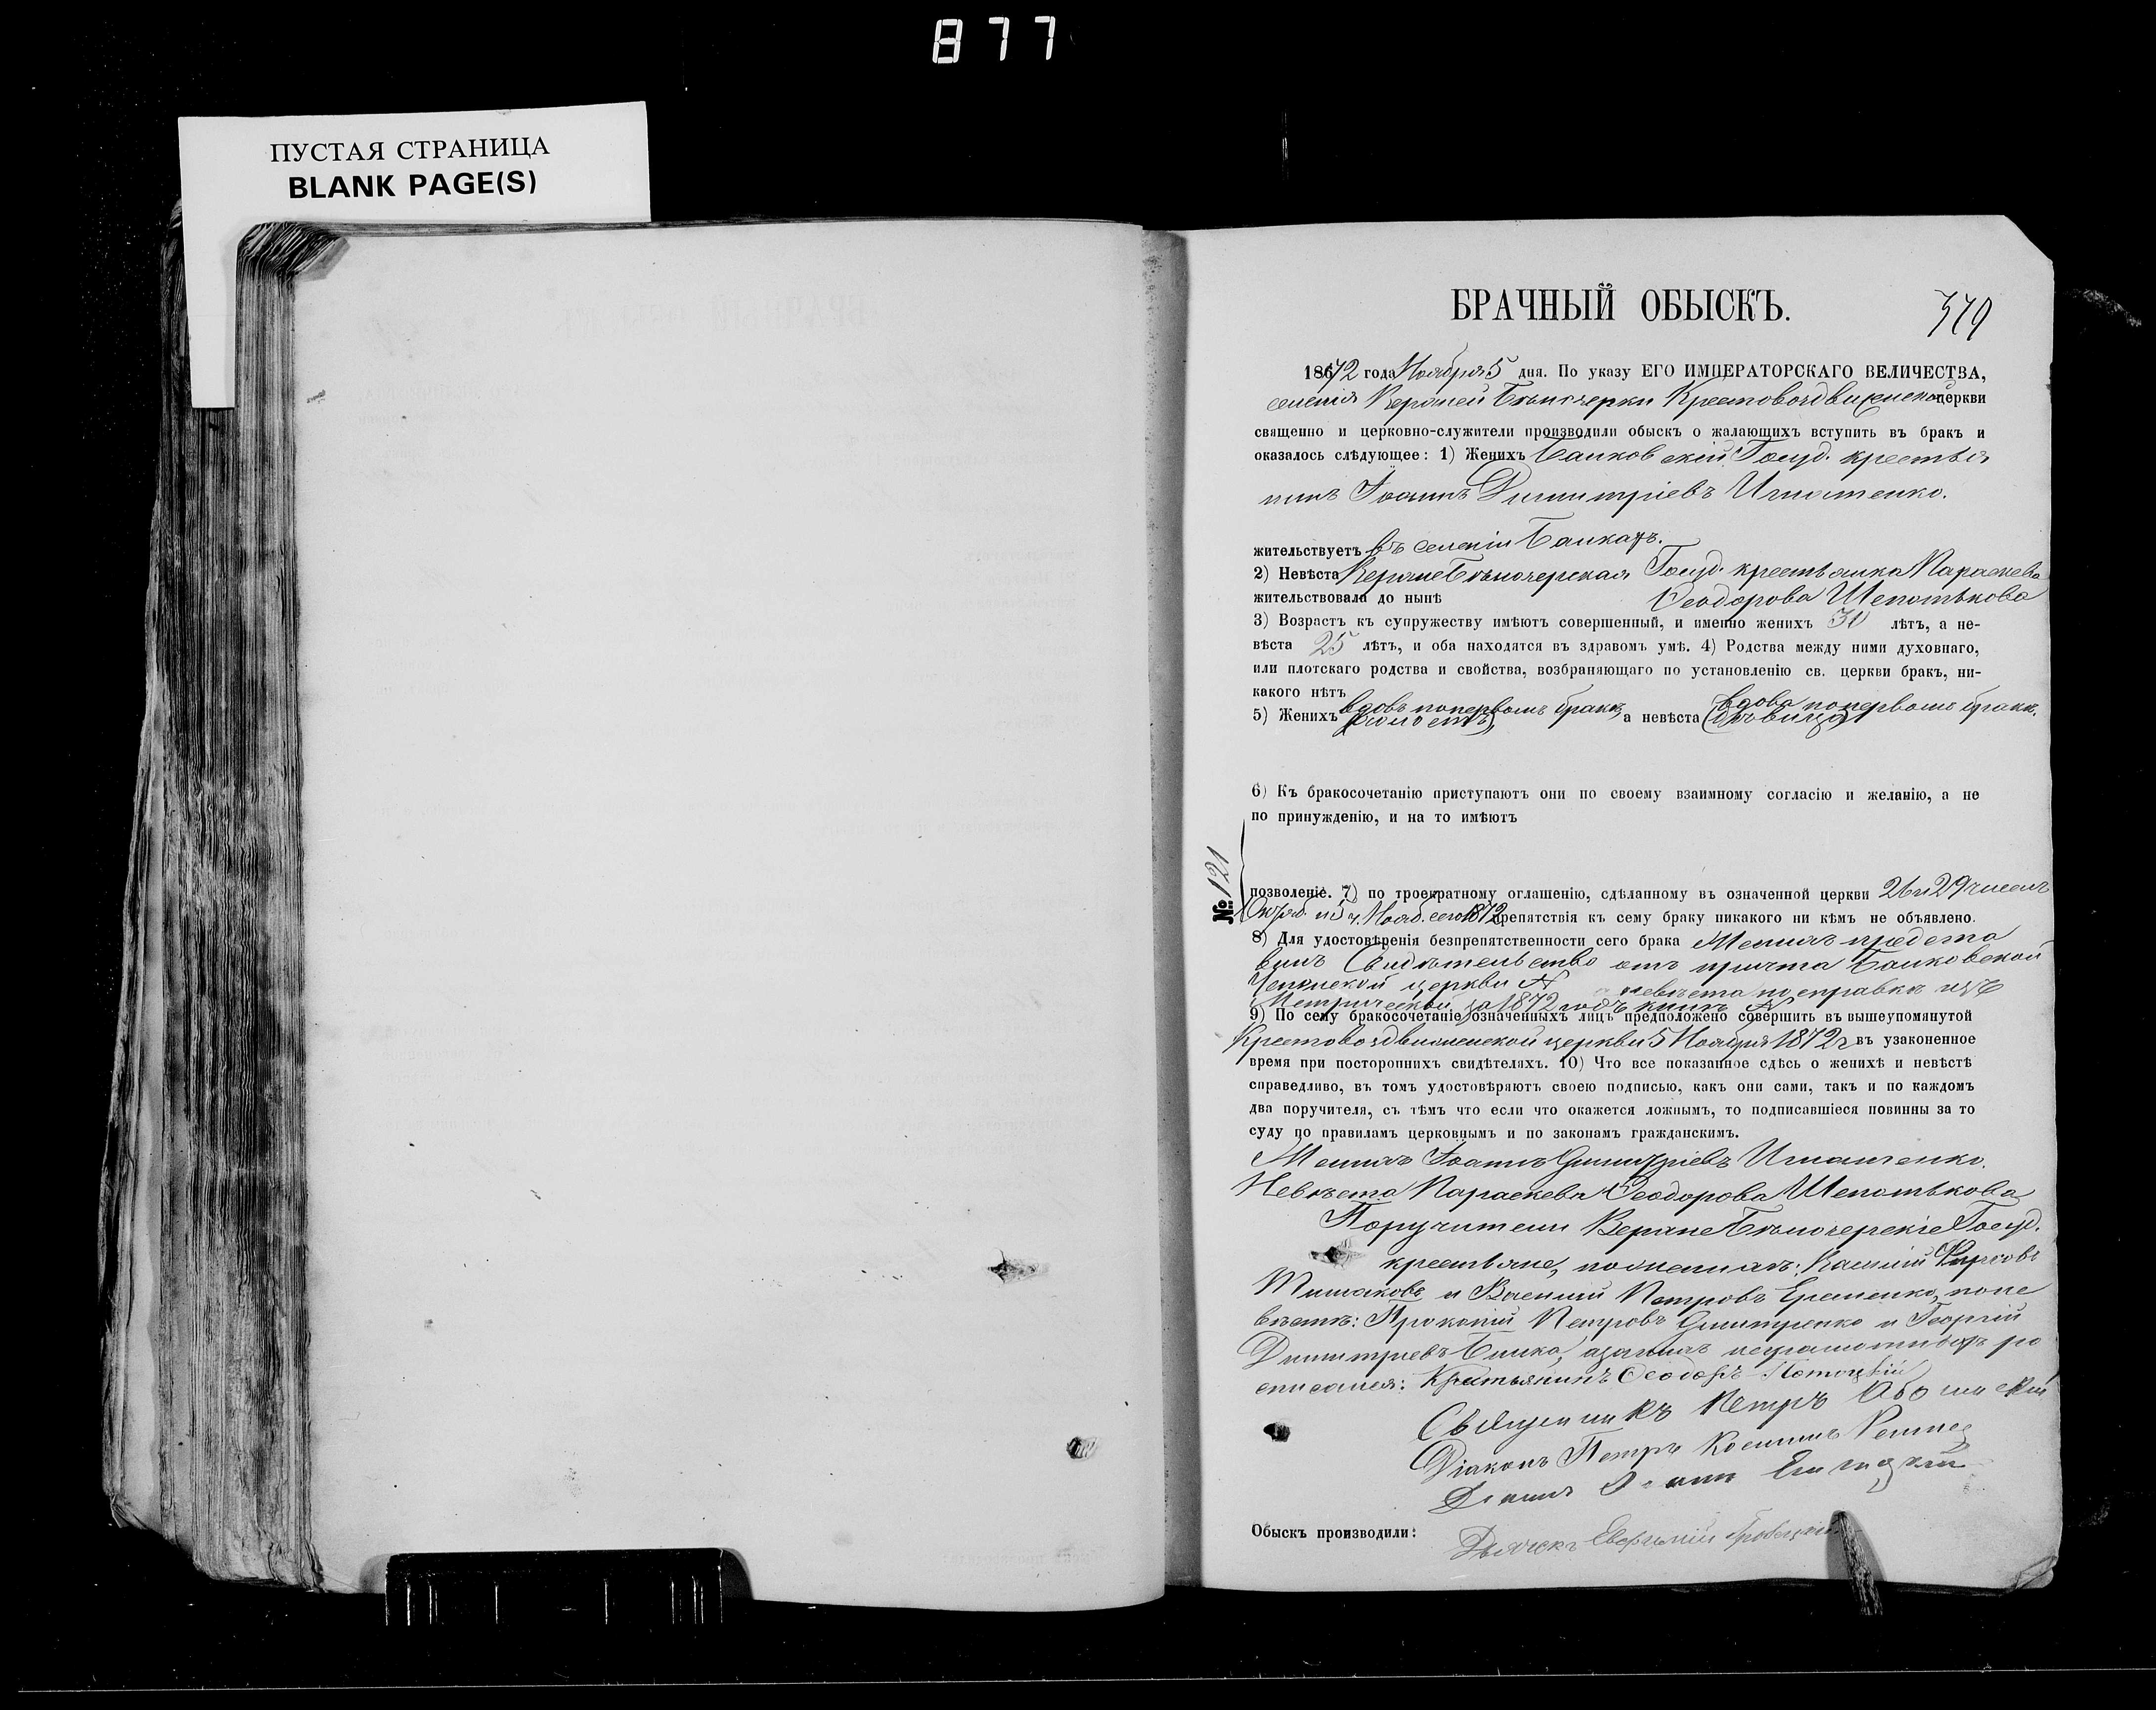 877
ПУСТАЯ СТРАНИЦА
BLANK PAGE(S)
БРАЧНЫЙ ОБЫСКЪ.
379
1872 года Ноября 5 дня. По указу ЕГО ИМПЕРАТОРСКАГО ВЕЛИЧЕСТВА,
селенія Верхней Бѣлозерки Крестовоздвиженской церкви
священно и церковно-служители производили обыскъ о жалающихъ вступить въ бракъ и
оказалось слѣдующее: 1) Женихъ Балковскій Госуд. крестья
нинъ Іоаннъ Димитріевъ Игнатенко.
жительствуетъ въ селеніи Балкахъ.
2) Невѣста Верхнебѣлозерская Госуд. крестьянка Параскева
жительствовала до нынѣ Ѳеодорова Шепотькова
3) Возрастъ къ супружеству имѣютъ совершенный, и именно женихъ 30 лѣтъ, а не-
вѣста 25 лѣтъ, и оба находятся въ здравомъ умѣ. 4) Родства между ними духовнаго,
или плотскаго родства и свойства, возбраняющаго по установленію св. церкви бракъ, ни-
какого нѣтъ
5) Женихъ вдовъ по первомъ бракѣ (холостъ), а невѣста вдова по первомъ бракѣ. (дѣвица)
6) Къ бракосочетанію приступаютъ они по своему взаимному согласію и желанію, а не
по принужденію, и на то имѣютъ
№ 121
позволеніе. 7) по троекратному оглашенію, сдѣланному въ означенной церкви 26 и 29 чиселъ
Октяб. и 5 ч. Нояб. сего 1872 препятствія къ сему браку никакого ни кѣмъ не объявлено.
8) Для удостовѣренія безпрепятственности сего брака Женихъ предста
вилъ Свидѣтельство отъ причта Балковской
Успенской церкви № невѣста по справкѣ изъ
Метрической за 1872 годъ книгѣ №
9) По сему бракосочетаніе означенныхъ лицъ предположено совершить въ вышеупомянутой
Крестовоздвиженской церкви 5 Ноября 1872 г. въ узаконенное
время при постороннихъ свидѣтеляхъ. 10) Что все показанное сдѣсь о женихѣ и невѣстѣ
справедливо, въ томъ удостовѣряютъ своею подписью, какъ они сами, такъ и по каждомъ
два поручителя, съ тѣмъ что если что окажется ложнымъ, то подписавшіеся повинны за то
суду по правиламъ церковнымъ и по законамъ гражданскимъ.
Женихъ Іоаннъ Димитріевъ Игнатенко.
Невѣста Параскева Ѳеодорова Шепотькова
Поручители Верхнебѣлозерскіе Госуд.
крестьяне, по женихѣ:
и Василій Петровъ Еременко, по не
вѣстѣ: Прокопій Петровъ Дмитренко и Георгій
Димитріевъ Билка, а за нихъ неграмотныхъ ро
списался: Крестьянинъ Ѳеодоръ
Священникъ Петръ
Діаконъ Петръ
Обыскъ производили:
Дьячекъ Евфимій